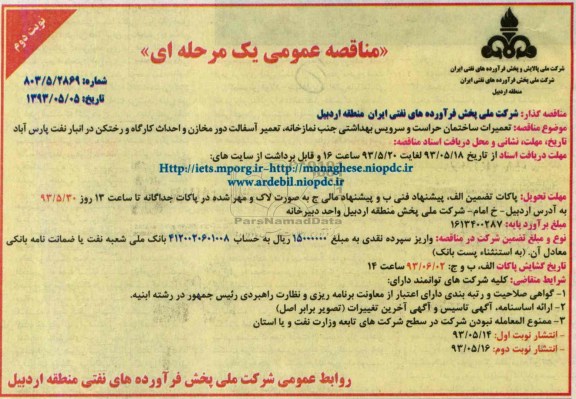 نوبت دوم
«مناقصه عمومی یک مرحله ای»
شرکت ملی پالایش و پخش فرآورده های نفتی ایران
شرکت ملی پخش فرآورده های نفتی ایران
منطقه اردبیل
شماره: ۸۰۳/۵/۲۸۶۹
تاریخ: ۱۳۹۳/۰۵/۰۵
مناقصه گذار: شرکت ملی پخش فرآورده های نفتی ایران منطقه اردبیل
موضوع مناقصه: تعمیرات ساختمان حراست و سرویس بهداشتی جنب نمازخانه، تعمیر آسفالت دور مخازن و احداث کارگاه و رختکن در انبار نفت پارس آباد
تاریخ، مهلت، نشانی و محل دریافت اسناد مناقصه:
مهلت دریافت اسناد: از تاریخ ۹۳/۰۵/۱۸ لغایت ۹۳/۵/۲۰ ساعت ۱۶ و قابل برداشت از سایت های:
Http://iets.mporg.ir-http://monaghese.niopdc.ir
www.ardebil.niopdc.ir
مهلت تحویل: پاکات تضمین الف، پیشنهاد فنی ب و پیشنهاد مالی ج به صورت لاک و مهر شده در پاکات جداگانه تا ساعت ۱۳ روز ۹۳/۵/۳۰
به آدرس اردبیل- خ امام- شرکت ملی پخش منطقه اردبیل واحد دبیرخانه
مبلغ برآورد پایه: ۱۶۱۳۴۰۰۲۸۷
نوع و مبلغ تضمین شرکت در مناقصه: واریز سپرده نقدی به مبلغ ۱۵۰۰۰۰۰۰ ریال به حساب ۴۱۲۰۰۲۰۶۰۱۰۰۸ بانک ملی شعبه نفت یا ضمانت نامه بانکی
معادل آن. (به استثناء پست بانک)
تاریخ گشایش پاکات الف، ب و ج: ۹۳/۰۶/۰۲ ساعت ۱۴
شرایط متقاضی: کلیه شرکت های توانمند دارای:
۱- گواهی صلاحیت و رتبه بندی دارای اعتبار از معاونت برنامه ریزی و نظارت راهبردی رئیس جمهور در رشته ابنیه.
۲- ارائه اساسنامه، آگهی تاسیس و آگهی آخرین تغییرات (تصویر برابر اصل)
۳- ممنوع المعامله نبودن شرکت در سطح شرکت های تابعه وزارت نفت و یا استان
- انتشار نوبت اول: ۹۳/۰۵/۱۴
- انتشار نوبت دوم: ۹۳/۰۵/۱۶
روابط عمومی شرکت ملی پخش فرآورده های نفتی منطقه اردبیل
ParsNamadData